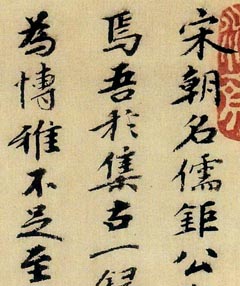 宋朝名儒鉅公
焉吾於集古一
為愽雅不足至